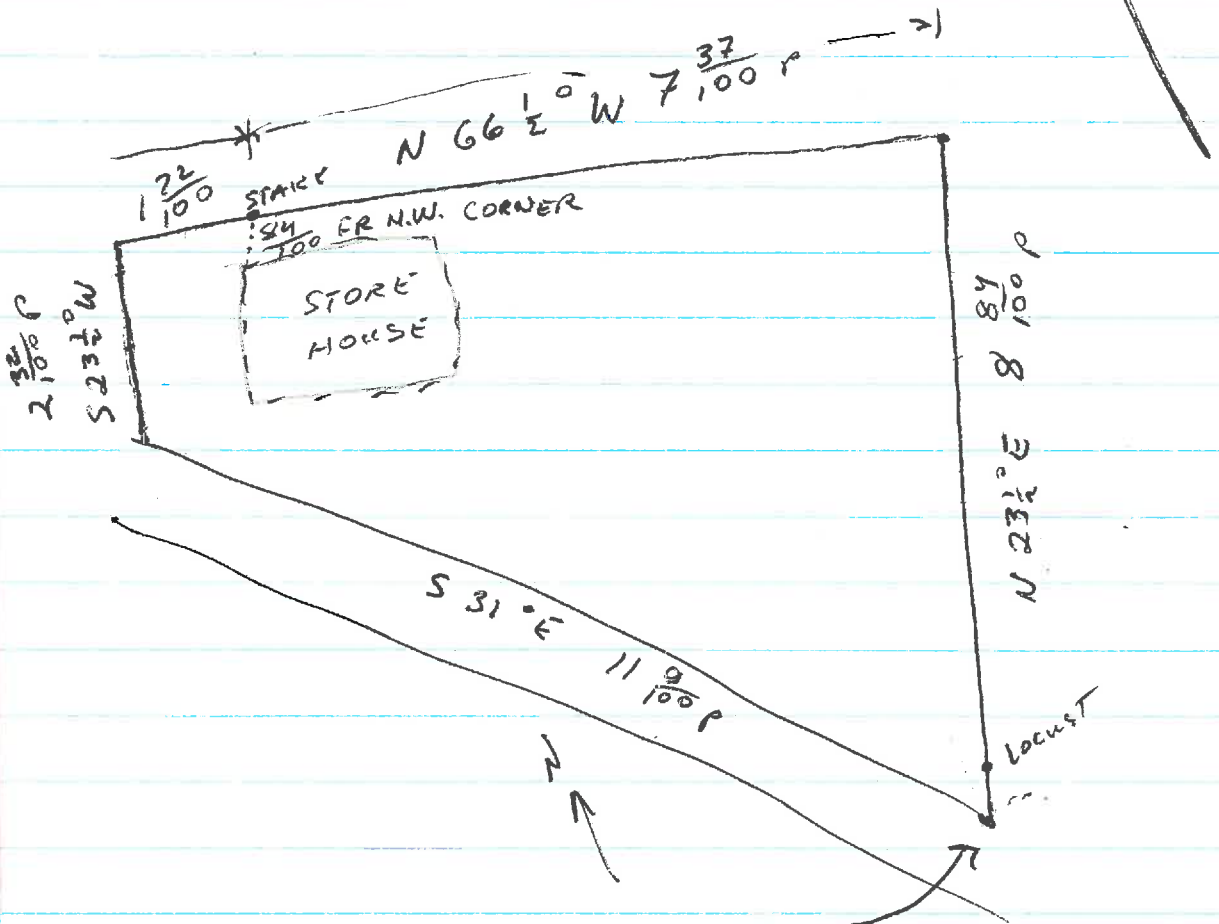 N 66 1/2 ° W 7 37/100 P
1 22/100
STAKE
84/100 FR N.W. CORNER
STORE
HOUSE
2 32/100 P
S 23 1/2 ° W
N 23 1/2 ° E 8 84/100 P
S 31 ° E 11 9/100 P
LOCUST
N